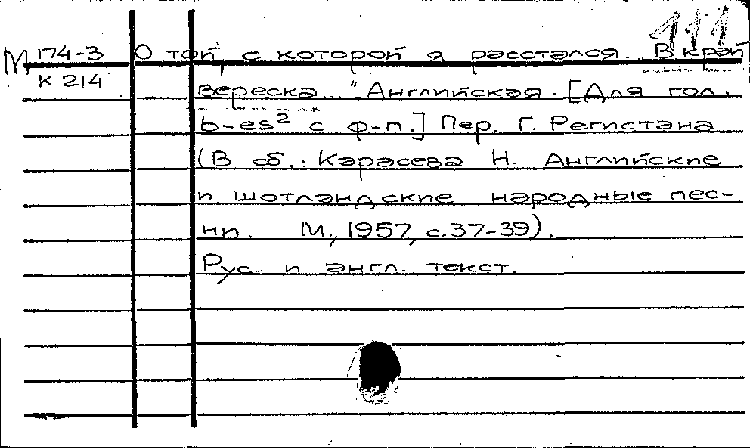 111
М 174-3 О той, с которой я расстался. В край
К 214 вереска..." Английская. [Для гол.
b-es² с ф-п.] Пер. Г. Регистана
(В сб.: Карасева Н. Английские
и шотландские народные пес-
ни. М., 1957, с.37-39).
Рус. и англ. текст.